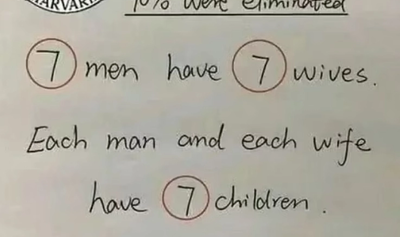 HARVARD
10% were eliminated
7 men have 7 wives.
Each man and each wife
have 7 children.